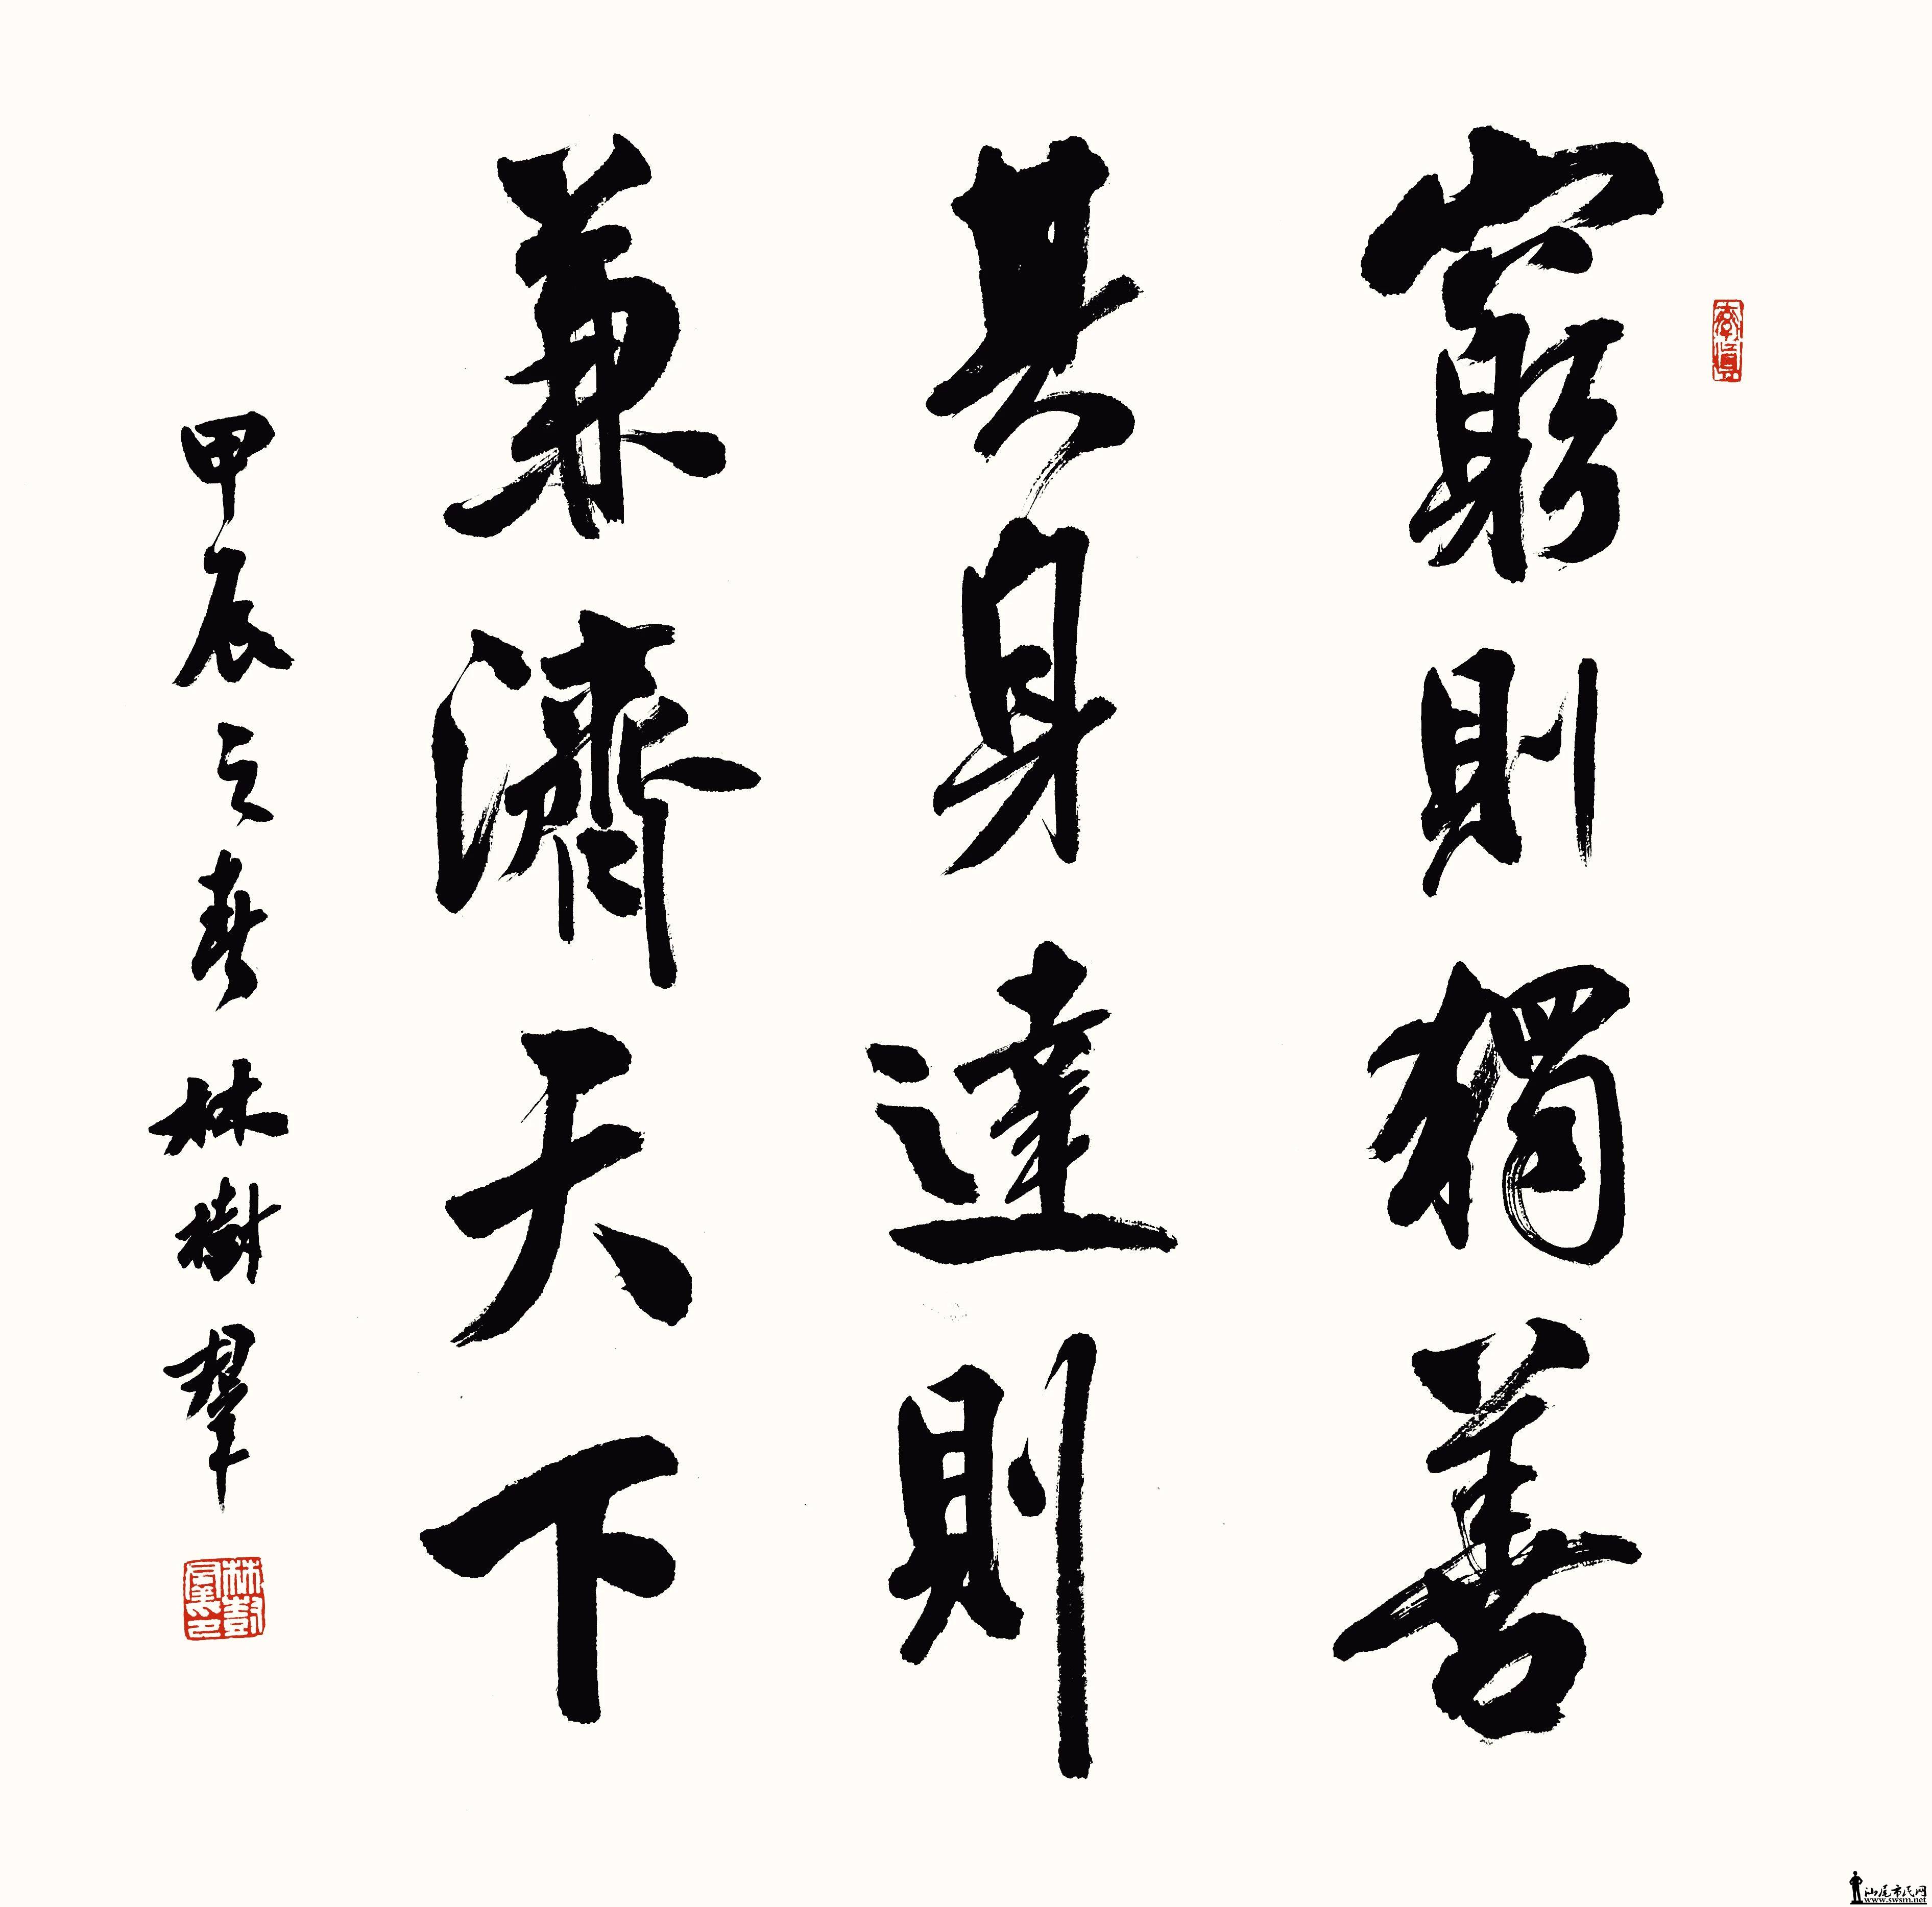 窮則獨善
其身達則
兼濟天下
甲辰之春 林樹群
汕尾市民网
www.swsm.net